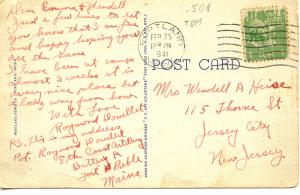 Dear Emma & Wendell
Just a few lines to let
you know that I am fine
and happy hoping you
are the same.
I have been at camp
about 3 weeks it is
a very nice place but
a long way from home
With love
Raymond Woullett
P.S. This is my address
Pvt. Raymond Woullett
8th Coast Artillery
Battery A
Fort Preble
Maine
.50¢
TOM
PORTLAND
FEB 25
PM
1941
POST CARD
Mrs Wendell A Heise
115 Thorne St
Jersey City
New Jersey